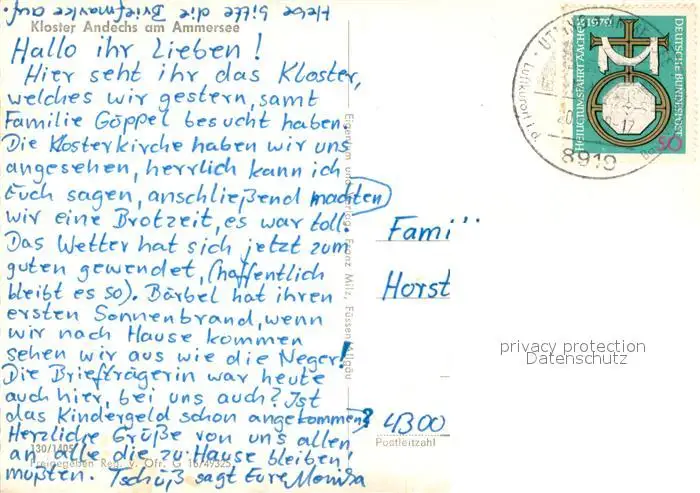 Hebe bitte die Briefmarke auf.
Kloster Andechs am Ammersee
Hallo ihr Lieben!
Hier seht ihr das Kloster,
welches wir gestern, samt
Familie Göppel besucht haben.
Die Klosterkirche haben wir uns
angesehen, herrlich kann ich
Euch sagen, anschließend machten
wir eine Brotzeit, es war toll.
Das Wetter hat sich jetzt zum
guten gewendet, (hoffentlich
bleibt es so). Bärbel hat ihren
ersten Sonnenbrand, wenn
wir nach Hause kommen
sehen wir aus wie die Neger!
Die Briefträgerin war heute
auch hier, bei uns auch? Ist
das Kindergeld schon angekommen?
Herzliche Grüße von uns allen
an alle die zu Hause bleiben
mußten. Tschüß sagt Eure Monika
130/1405
Freigegeben Reg. v. Ofr. G 16/49325
Eigentum und Verlag Franz Milz, Füssen Allgäu
Fami
Horst
4300
Postleitzahl
1979
HEILIGTUMSFAHRT AACHEN
DEUTSCHE BUNDESPOST
50
UT
Luftkurort
8919
privacy protection
Datenschutz